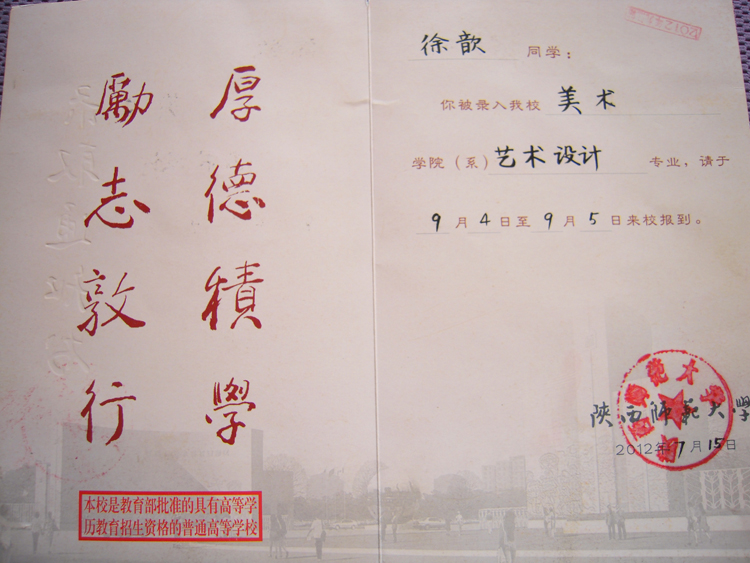 厚德積學
勵志敦行
本校是教育部批准的具有高等学
历教育招生资格的普通高等学校
徐歆 同学：
你被录入我校 美术
学院（系）艺术设计 专业，请于
9月4日至9月5日来校报到。
陝西师範大學
2012年7月15日